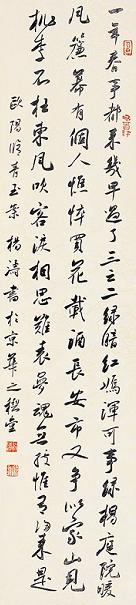 一年春事都來幾早過了三之二綠暗紅嫣渾可事綠楊庭院暖
風簾幕有個人憔悴買花載酒長安市又爭似家山見
桃李不枉東風吹客淚相思難表夢魂無據惟有歸來是
歐陽脩青玉案 楊濤書於京華之堂